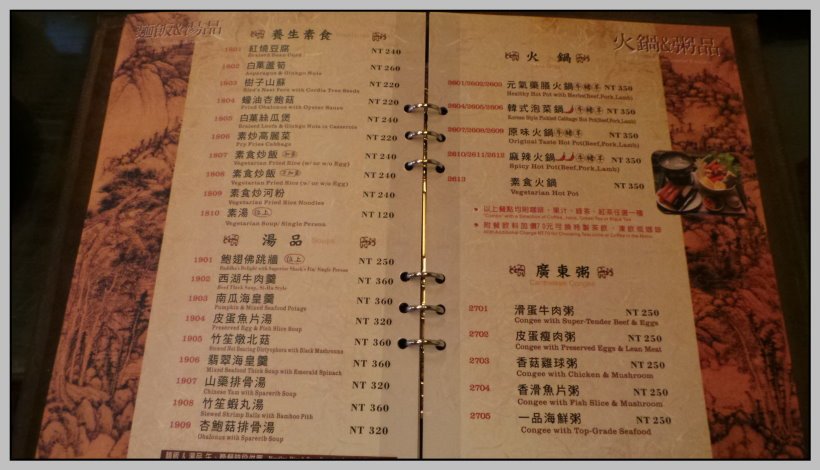 麵飯&湯品
養生素食
1801 紅燒豆腐 NT 240
Braised Bean Curd
1802 白菓蘆筍 NT 260
Asparagus & Ginkgo Nuts
1803 樹子山蘇 NT 220
Bird's Nest Fern with Cordia Tree Seeds
1804 蠔油杏鮑菇 NT 220
Fried Ohalonus with Oyster Sauce
1805 白菓絲瓜煲 NT 240
Braised Loofa & Ginkgo Nuts in Casserole
1806 素炒高麗菜 NT 220
Fry Fried Cabbage
1807 素食炒飯 NT 240
Vegetarian Fried Rice (w/ or w/o Egg)
1808 素食炒飯 NT 240
Vegetarian Fried Rice (w/ or w/o Egg)
1809 素食炒河粉 NT 240
Vegetarian Fried Rice Noodles
1810 素湯 位上 NT 120
Vegetarian Soup/ Single Person
湯品 Soups
1901 鮑翅佛跳牆 位上 NT 250
Buddha's Delight with Superior Shark's Fin/ Single Person
1902 西湖牛肉羹 NT 360
Beef Thick Soup, Si-Hu Style
1903 南瓜海皇羹 NT 360
Pumpkin & Mixed Seafood Potage
1904 皮蛋魚片湯 NT 320
Preserved Egg & Fish Slice Soup
1905 竹笙燉北菇 NT 360
1906 翡翠海皇羹 NT 360
Mixed Seafood Thick Soup with Emerald Spinach
1907 山藥排骨湯 NT 320
Chinese Yam with Sparerib Soup
1908 竹笙蝦丸湯 NT 360
Stewed Shrimp Balls with Bamboo Pith
1909 杏鮑菇排骨湯 NT 320
Ohalonus with Sparerib Soup
火鍋&粥品
火鍋
2601/2602/2603 元氣藥膳火鍋 牛 豬 羊 NT 350
Healthy Hot Pot with Herbs(Beef,Pork,Lamb)
2604/2605/2606 韓式泡菜鍋 牛 豬 羊 NT 350
Korean Style Pickled Cabbage Hot Pot(Beef,Pork,Lamb)
2607/2608/2609 原味火鍋 牛 豬 羊 NT 350
Original Taste Hot Pot(Beef,Pork,Lamb)
2610/2611/2612 麻辣火鍋 牛 豬 羊 NT 350
Spicy Hot Pot(Beef,Pork,Lamb)
2613 素食火鍋 NT 350
Vegetarian Hot Pot
* 以上餐點均附咖啡、果汁、綠茶、紅茶任選一種
* 附餐飲料加價70元可換特製茶飲、
廣東粥
Cantonese Congee
2701 滑蛋牛肉粥 NT 250
Congee with Super-Tender Beef & Eggs
2702 皮蛋瘦肉粥 NT 250
Congee with Preserved Eggs & Lean Meat
2703 香菇雞球粥 NT 250
Congee with Chicken & Mushroom
2704 香滑魚片粥 NT 250
Congee with Fish Slice & Mushroom
2705 一品海鮮粥 NT 250
Congee with Top-Grade Seafood